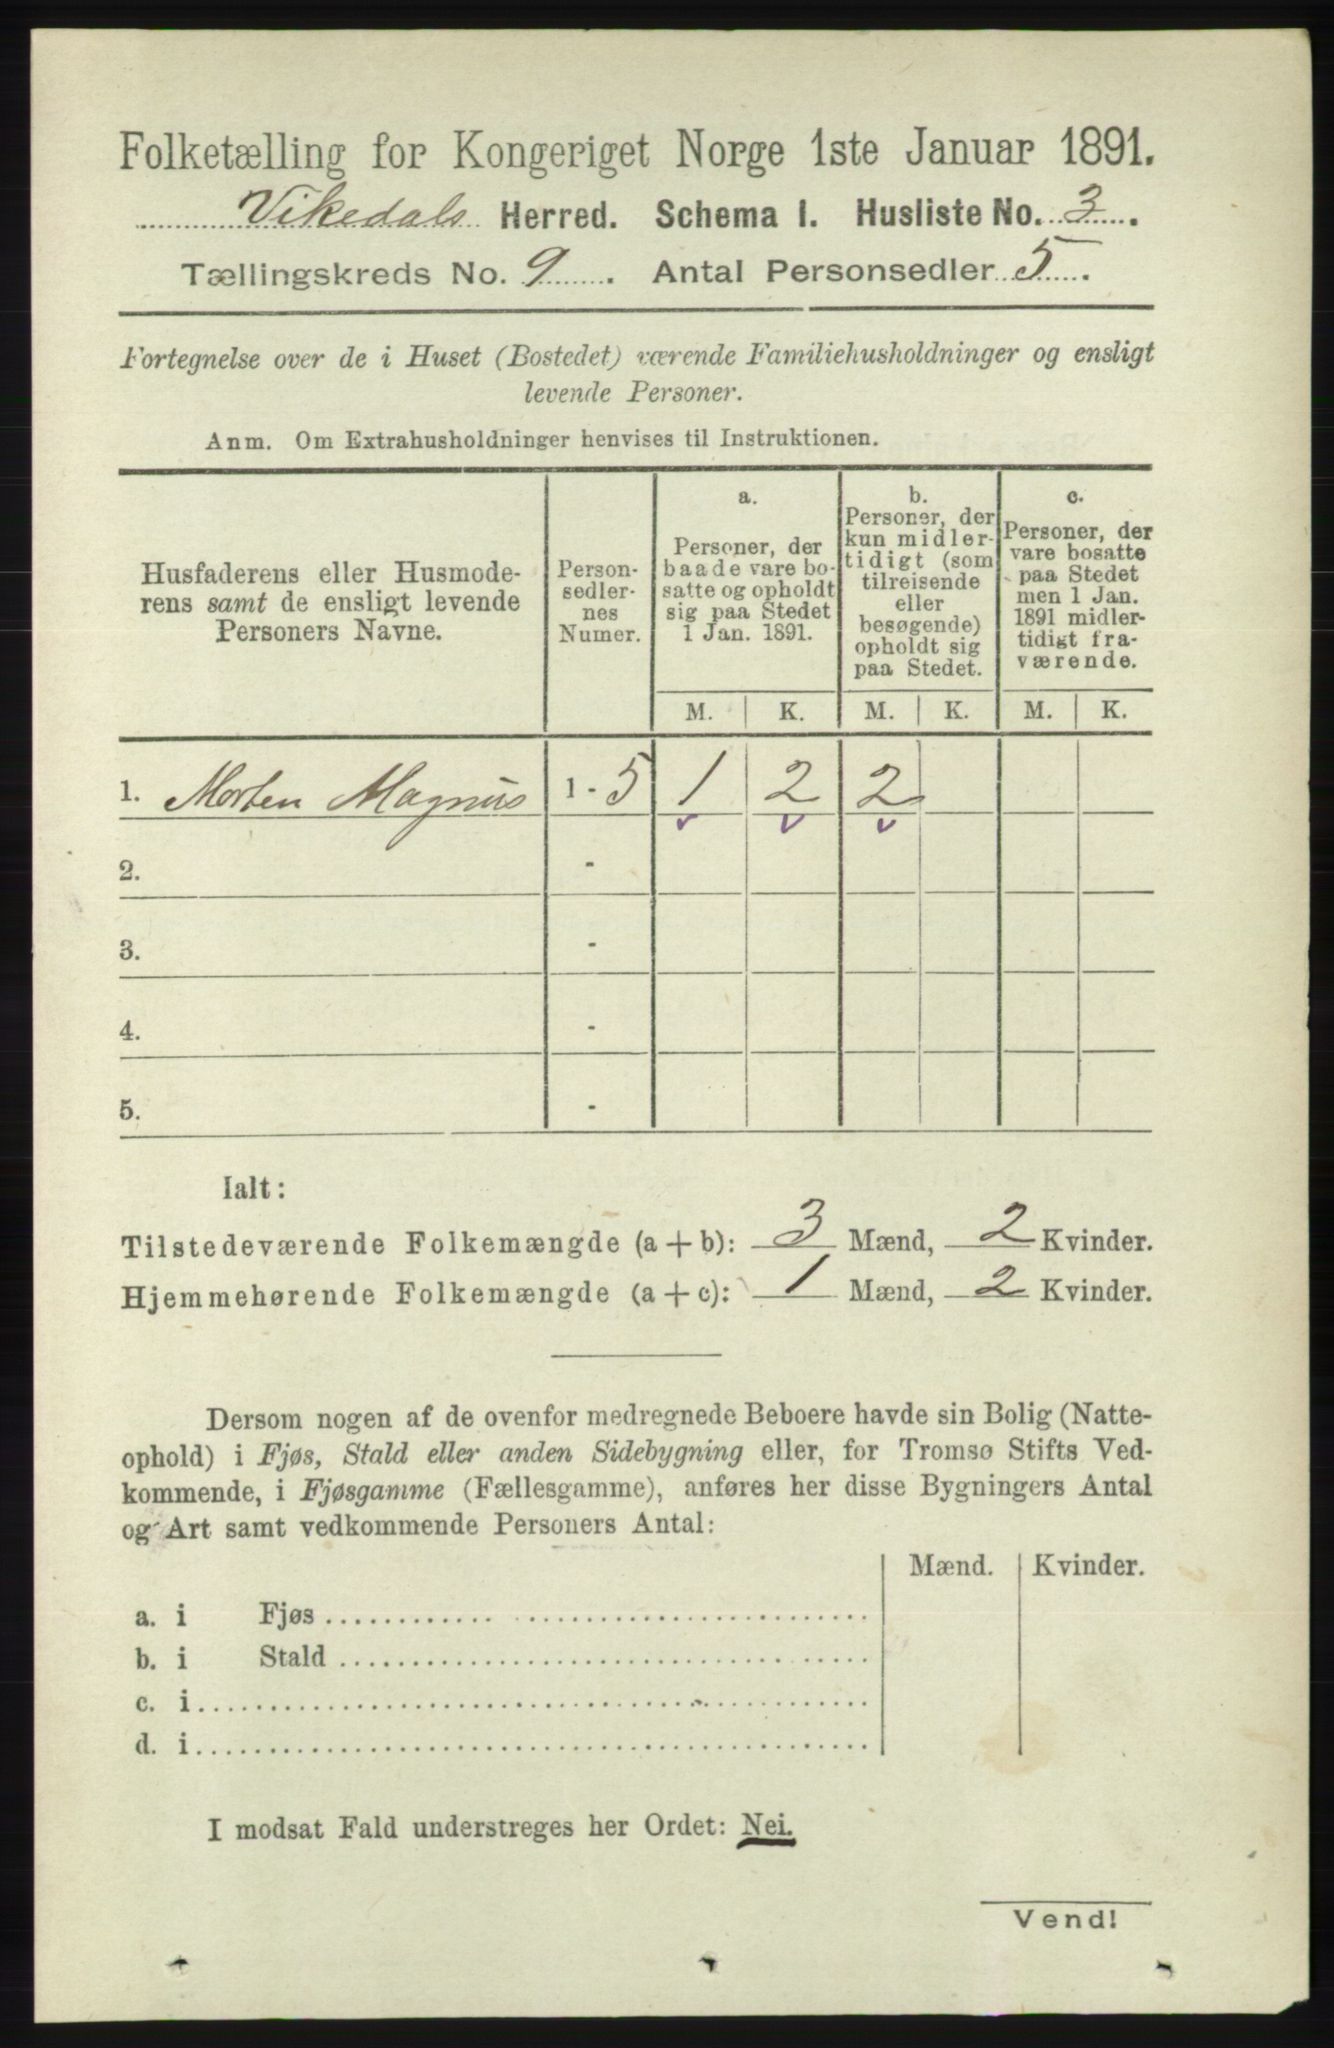 Folketælling for Kongeriget Norge 1ste Januar 1891.
Vikedals Herred. Schema I. Husliste No. 3.
Tællingskreds No. 9. Antal Personsedler 5.
Fortegnelse over de i Huset (Bostedet) værende Familiehusholdninger og ensligt
levende Personer.
Anm. Om Extrahusholdninger henvises til Instruktionen.
Husfaderens eller Husmode-
rens samt de ensligt levende
Personers Navne.
Person-
sedler-
nes
Numer.
a.
Personer, der
baade vare bo-
satte og opholdt
sig paa Stedet
1 Jan. 1891.
b.
Personer, der
kun midler-
tidigt (som
tilreisende
eller
besøgende)
opholdt sig
paa Stedet.
c.
Personer, der
vare bosatte
paa Stedet
men 1 Jan.
1891 midler-
tidigt fra-
værende.
M. K. M. K. M. K.
1. Morten Magnus 1 - 5 1 2 2
2. -
3. -
4. -
5. -
Ialt:
Tilstedeværende Folkemængde (a + b): 3 Mænd, 2 Kvinder.
Hjemmehørende Folkemængde (a + c): 1 Mænd, 2 Kvinder.
Dersom nogen af de ovenfor medregnede Beboere havde sin Bolig (Natte-
ophold) i Fjøs, Stald eller anden Sidebygning eller, for Tromsø Stifts Ved-
kommende, i Fjøsgamme (Fællesgamme), anføres her disse Bygningers Antal
og Art samt vedkommende Personers Antal:
Mænd. Kvinder.
a. i Fjøs
b. i Stald
c. i
d. i
I modsat Fald understreges her Ordet: Nei.
Vend!